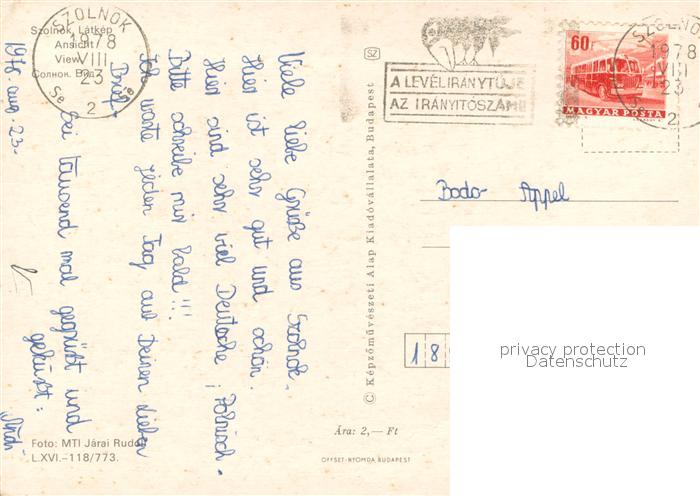 Szolnok, Látkép
Ansicht
View
Солнок. Вид
SZOLNOK
1978
VIII
23
2
1978 aug. 23.
Viele liebe Grüße aus Szolnok.
Hier ist sehr gut und schön.
Hier sind sehr viel Deutsche, Polnisch.
Bitte schreibe mir bald!!!
Ich warte jeden Tag auf Deinen lieben
Brief.
Sei tausend mal gegrüßt und
geküsst:
Foto: MTI Járai Rudolf
L.XVI.–118/773.
SZ
© Képzőművészeti Alap Kiadóvállalata, Budapest
Ára: 2,— Ft
OFFSET-NYOMDA BUDAPEST
A LEVÉLIRÁNYTŰJE
AZ IRÁNYITÓSZÁM!
60f
MAGYAR POSTA
SZOLNOK
1978
VIII
23
2
Bodo Appel
18
privacy protection
Datenschutz